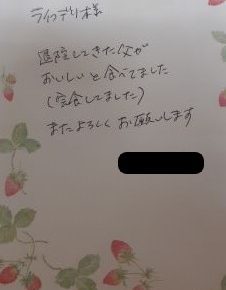 ライフデリ様
退院してきた父が
おいしいと食べてました
(完食してました)
またよろしくお願いします